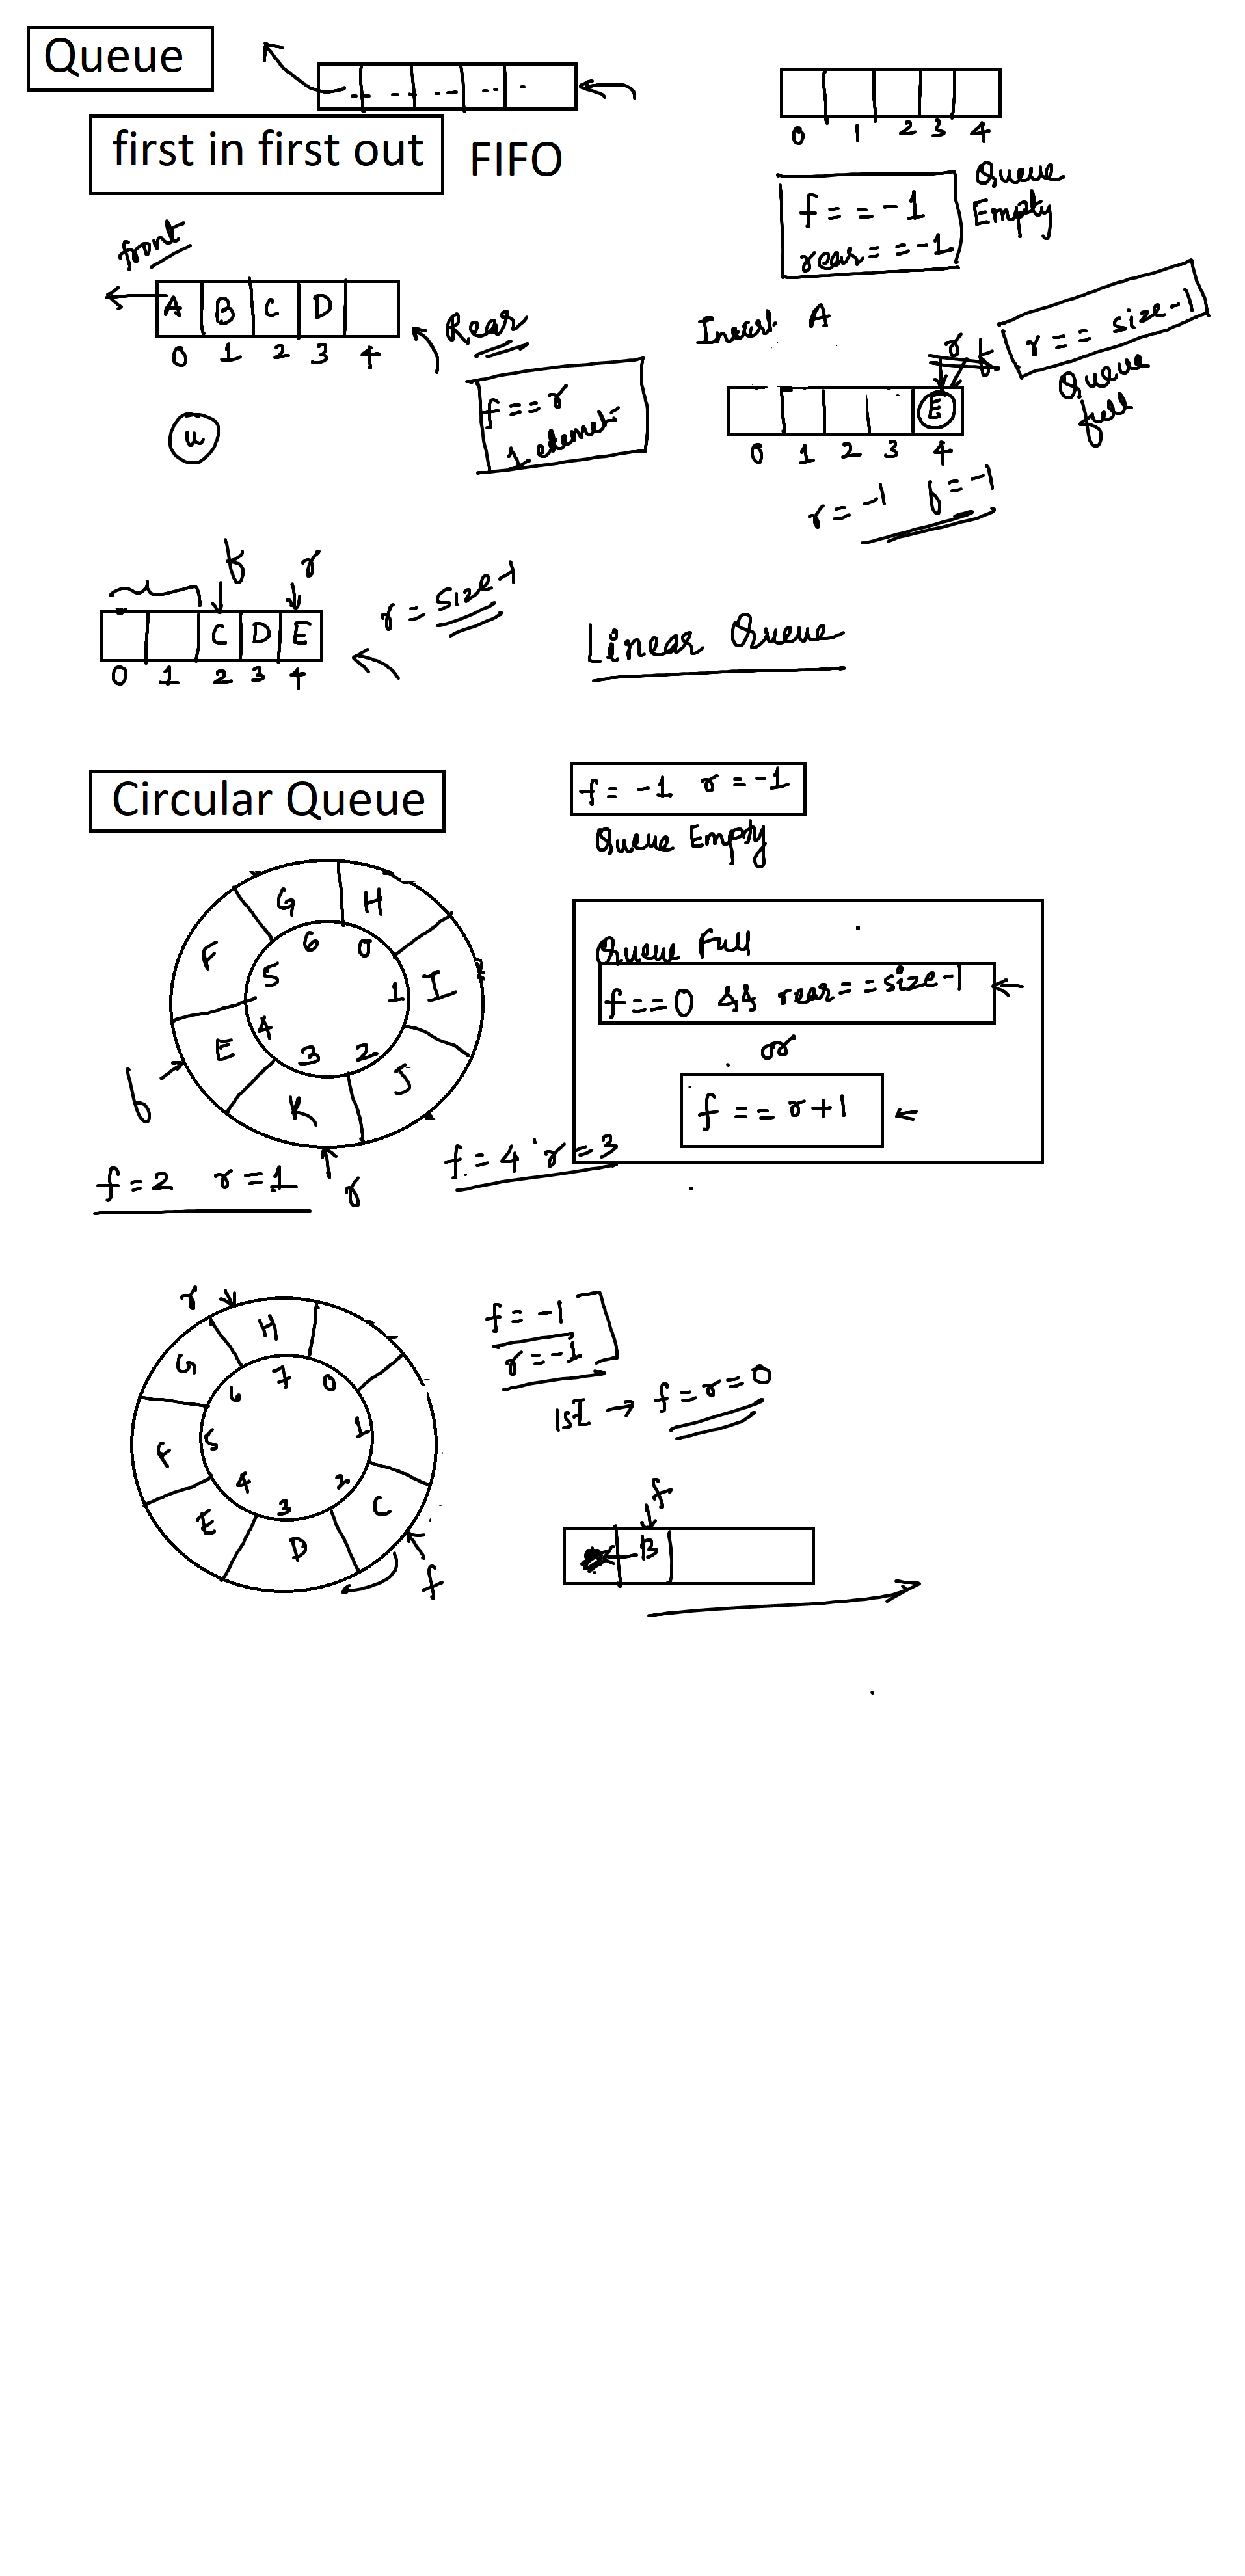 Queue
first in first out FIFO
0 1 2 3 4
f == -1
rear == -1
Queue
Empty
front
A B C D
0 1 2 3 4
Rear
f == r
1 element
Insert A
r f
r == size-1
Queue
full
E
0 1 2 3 4
r = -1 f = -1
f r
C D E
0 1 2 3 4
r = size-1
Linear Queue
Circular Queue
f = -1 r = -1
Queue Empty
G H
F I
E J
K
6 0
5 1
4 2
3
f
r
f = 2 r = 1
f = 4 r = 3
Queue Full
f == 0 && rear == size-1
or
f == r+1
r
H
G
F C
E D
7 0
6 1
5 2
4 3
f
f = -1
r = -1
Ist → f = r = 0
f
B